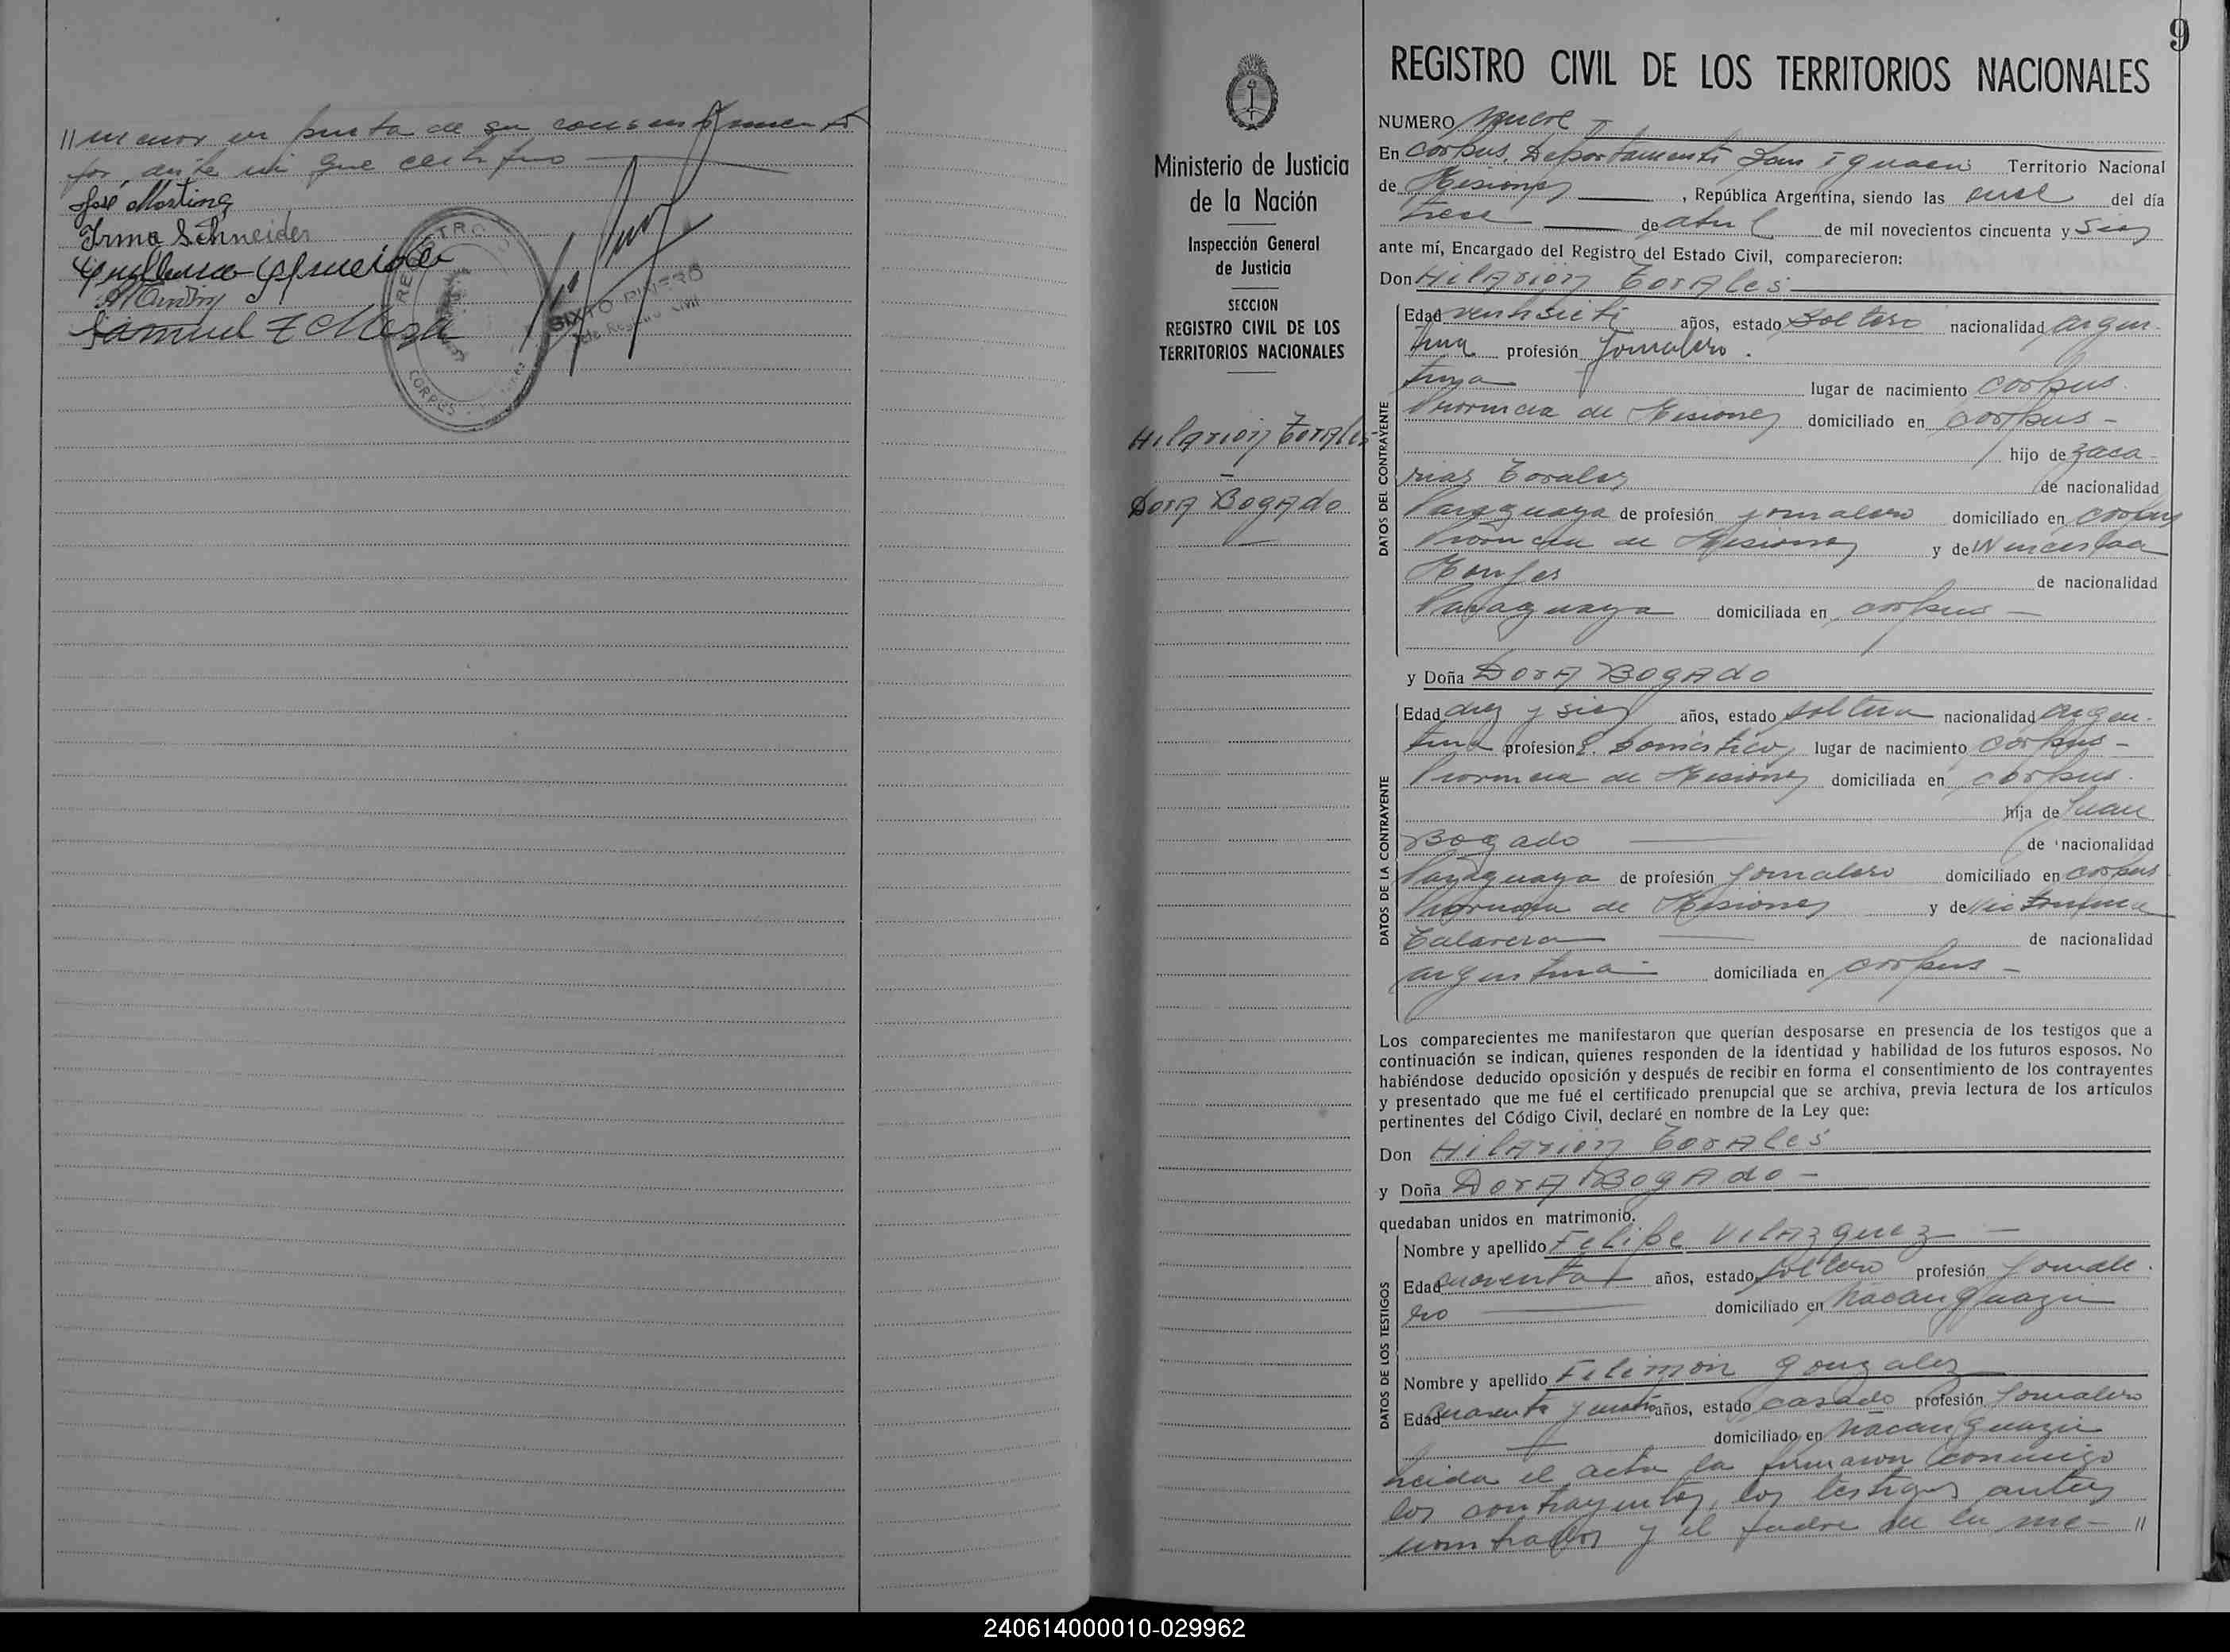 // menor en prueba de su consentimiento
por ante mi que certifico
José Martinez
Irma Schneider
Guillermo Schneider
Samuel E Meza
REGISTRO
CORPUS
SIXTO PIÑERO
de Registro Civil
9
Ministerio de Justicia
de la Nación
Inspección General
de Justicia
SECCION
REGISTRO CIVIL DE LOS
TERRITORIOS NACIONALES
Hilarion Torales
Dora Bogado
REGISTRO CIVIL DE LOS TERRITORIOS NACIONALES
NUMERO nueve
En Corpus, Departamento San Ignacio Territorio Nacional
de Misiones, República Argentina, siendo las once del día
trece de abril de mil novecientos cincuenta y seis
ante mí, Encargado del Registro del Estado Civil, comparecieron:
Don Hilarión Torales
DATOS DEL CONTRAYENTE
Edad veintisiete años, estado soltero nacionalidad argen-
tina profesión Jornalero.
tina lugar de nacimiento Corpus
Provincia de Misiones domiciliado en Corpus -
hijo de Zaca-
rias Torales de nacionalidad
Paraguaya de profesión jornalero domiciliado en Corpus
Provincia de Misiones y de Wenceslaa
Monges de nacionalidad
Paraguaya domiciliada en Corpus -
y Doña Dora Bogado
DATOS DE LA CONTRAYENTE
Edad diez y seis años, estado soltera nacionalidad argen-
tina profesion Q. Domésticos lugar de nacimiento Corpus -
Provincia de Misiones domiciliada en Corpus.
hija de Juan
Bogado de nacionalidad
Paraguaya de profesión Jornalero domiciliado en Corpus
Provincia de Misiones y de
Talavera de nacionalidad
argentina domiciliada en Corpus -
Los comparecientes me manifestaron que querían desposarse en presencia de los testigos que a
continuación se indican, quienes responden de la identidad y habilidad de los futuros esposos. No
habiéndose deducido oposición y después de recibir en forma el consentimiento de los contrayentes
y presentado que me fué el certificado prenupcial que se archiva, previa lectura de los artículos
pertinentes del Código Civil, declaré en nombre de la Ley que:
Don Hilarión Torales
y Doña Dora Bogado -
quedaban unidos en matrimonio.
DATOS DE LOS TESTIGOS
Nombre y apellido Felipe Velazquez -
Edad cuarenta años, estado soltero profesión Jornale-
ro domiciliado en Ñacanguazú
Nombre y apellido Filimón Gonzalez
Edad cuarenta y cuatro años, estado casado profesión Jornalero
domiciliado en Ñacanguazú
Leida el acta la firmaron conmigo
los contrayentes, los testigos antes
nombrados y el padre de la me- //
240614000010-029962